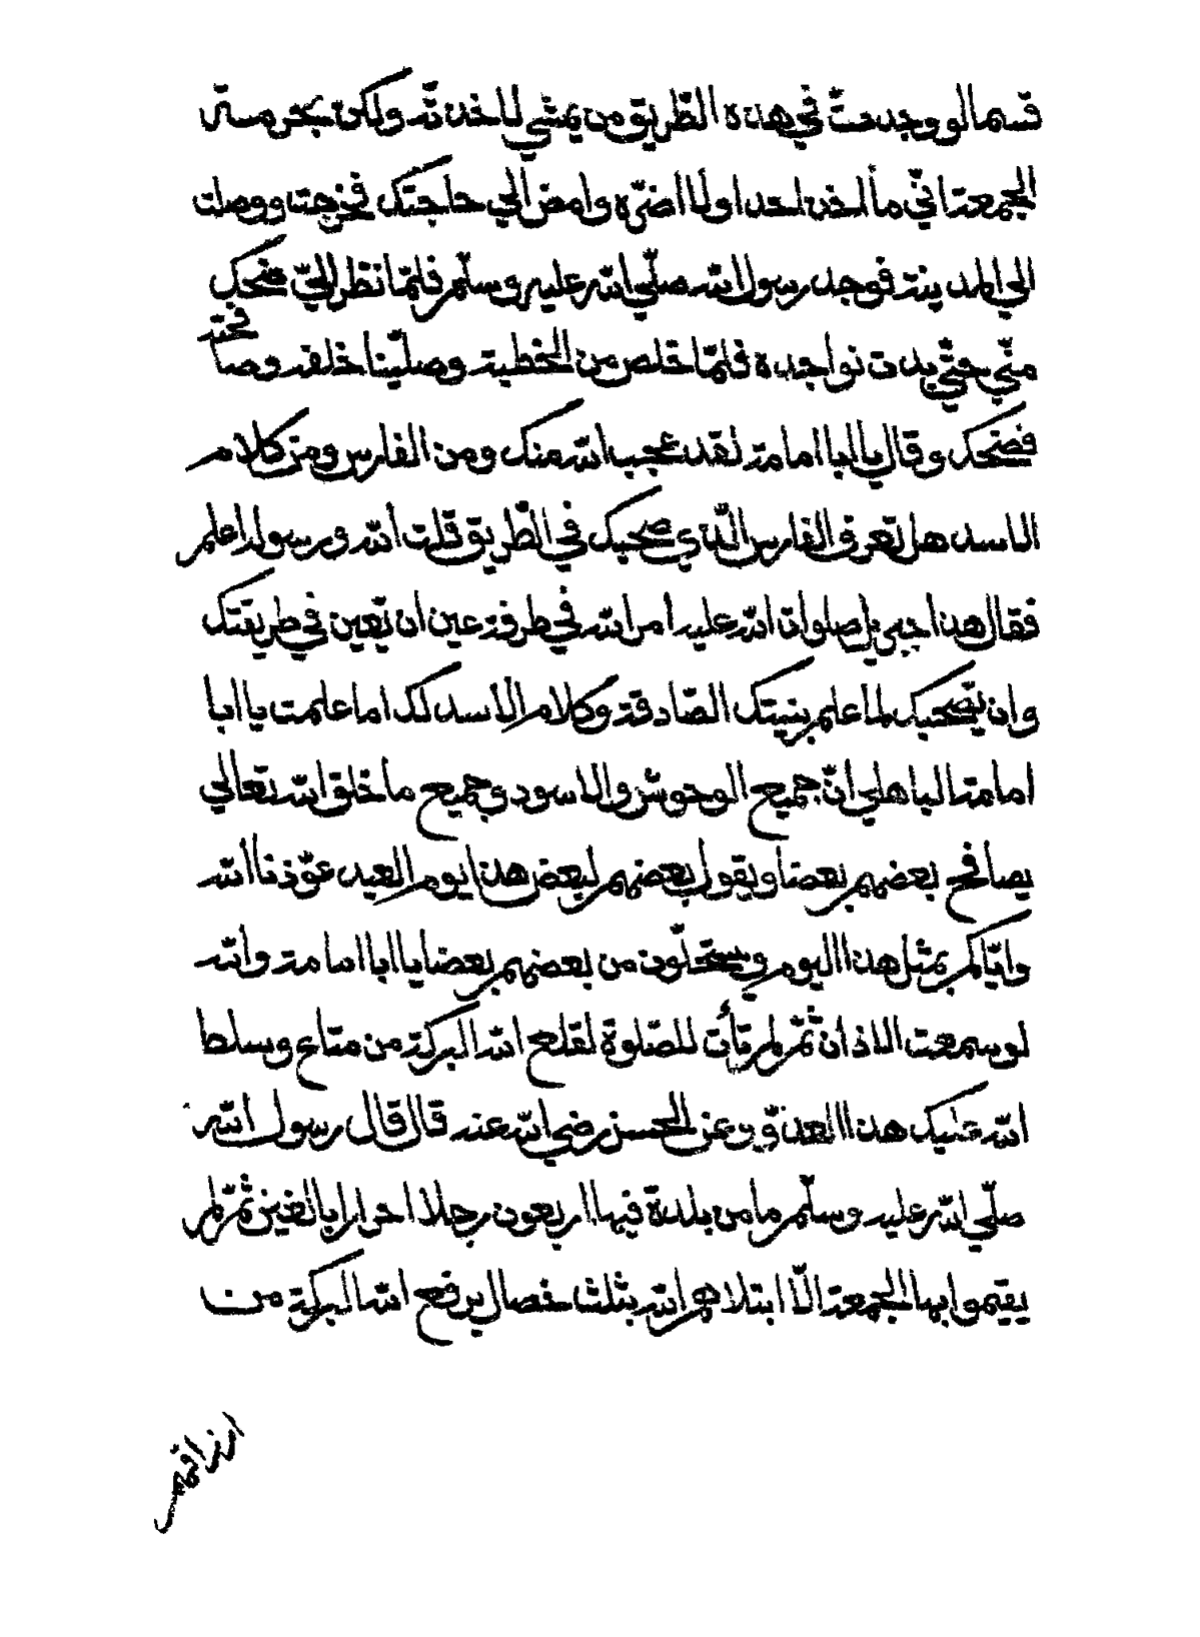 قسما لو وجدت في هذه الطّريق من يمشي لأخذته ولكن بحرمة
الجمعة انّي ما أأخذ احد اولا اضرّه وامض الي حاجتك فخرجت ووصلت
الي المدينة فوجد رسول الله صلّي الله عليه وسلّم فلمّا نظر اليّ ضحك
منّي حتّي بدت نواجده فلمّا خلص من الخطبة وصلّينا خلفه وصافحته
فضحك وقال يا ابا امامة لقد عجب الله منك ومن الفارس ومن كلام
الاسد هل تعرف الفارس الّذي صحبك في الطّريق قلت الله ورسوله اعلم
فقال هذا جبريل صلوات الله عليه امر الله في طرفة عين ان يّعين في طريقتك
وان يّصحبك لما اعلم بنيتك الصّادقة وكلام الاسد لك اما علمت يا ابا
امامة الباهلي انّ جميع الوحوش والاسود وجميع ما خلق الله تعالي
يصافح بعضهم بعضا ويقول بعضهم لبعض هذا يوم العيد عوّذنا الله
وايّاكم بمثل هذا اليوم ويستحلّون من بعضهم بعضا يا ابا امامة والله
لو سمعت الاذان ثمّ لم تأت للصّلوة لقلع الله البركة من متاع وسلط
الله عليك هذا العدوّ وعن الحسن رضي الله عنه قال قال رسول الله
صلّي الله عليه وسلّم ما من بلدة فيها اربعون رجلا احرارا بالغين ثمّ لم
يقيموا بها الجمعة الّا ابتلاهم الله بثلث خصال يرفع الله البركة من
ارزاقهم